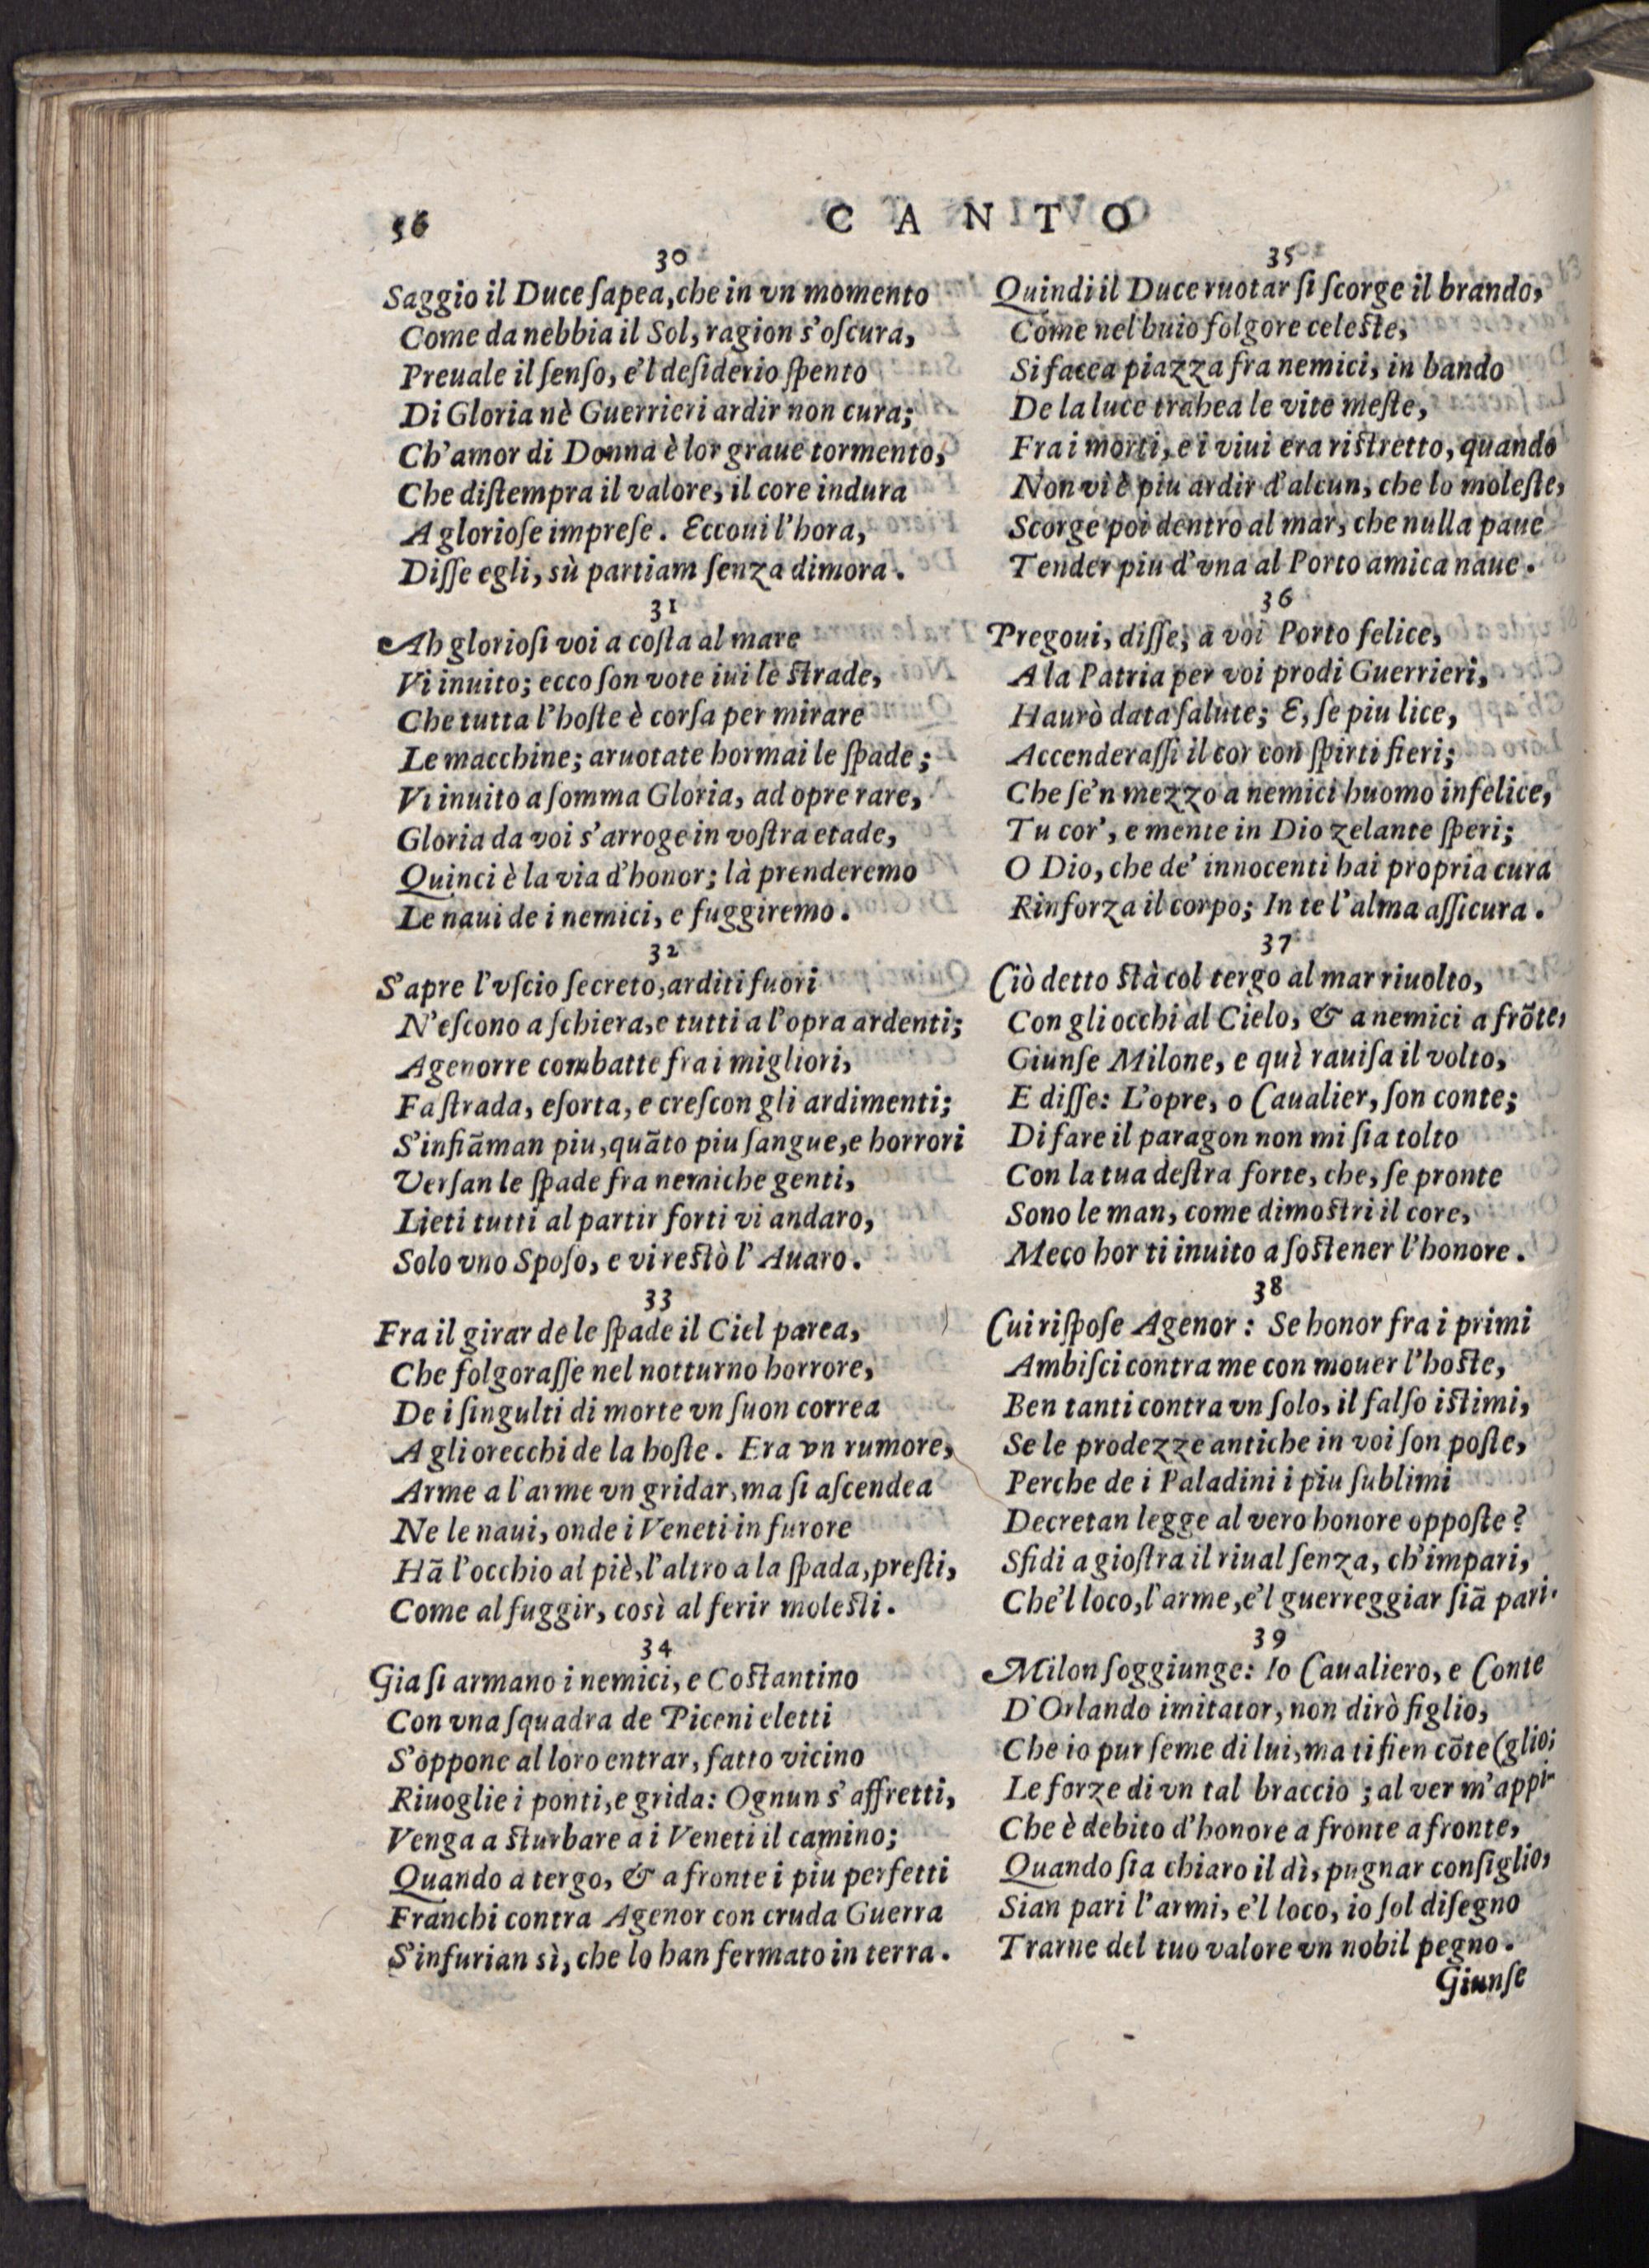 56
CANTO
30
Saggio il Duce ſapea, che in vn momento
Come da nebbia il Sol, ragion s'oſcura,
Preuale il ſenſo, e'l deſiderio ſpento
Di Gloria nè Guerrieri ardir non cura;
Ch'amor di Donna è lor graue tormento,
Che diſtempra il valore, il core indura
A glorioſe impreſe. Eccoui l'hora,
Diſſe egli, sù partiam ſenza dimora.
31
Ah glorioſi voi a coſta al mare
Vi inuito; ecco ſon vote iui le ſtrade,
Che tutta l'hoſte è corſa per mirare
Le macchine; aruotate hormai le ſpade;
Vi inuito a ſomma Gloria, ad opre rare,
Gloria da voi s'arroge in voſtra etade,
Quinci è la via d'honor; là prenderemo
Le naui de i nemici, e fuggiremo.
32
S'apre l'vſcio ſecreto, arditi fuori
N'eſcono a ſchiera, e tutti a l'opra ardenti;
Agenorre combatte fra i migliori,
Fa ſtrada, eſorta, e creſcon gli ardimenti;
S'infiãman piu, quãto piu ſangue, e horrori
Verſan le ſpade fra nemiche genti,
Lieti tutti al partir forti vi andaro,
Solo vno Spoſo, e vi reſtò l'Auaro.
33
Fra il girar de le ſpade il Ciel parea,
Che folgoraſſe nel notturno horrore,
De i ſingulti di morte vn ſuon correa
A gli orecchi de la hoſte. Era vn rumore,
Arme a l'arme vn gridar, ma ſi aſcendea
Ne le naui, onde i Veneti in furore
Hã l'occhio al piè, l'altro a la ſpada, preſti,
Come al fuggir, così al ferir moleſti.
34
Gia ſi armano i nemici, e Coſtantino
Con vna ſquadra de Piceni eletti
S'oppone al loro entrar, fatto vicino
Riuoglie i ponti, e grida: Ognun s'affretti,
Venga a ſturbare a i Veneti il camino;
Quando a tergo, & a fronte i piu perfetti
Franchi contra Agenor con cruda Guerra
S'infurian sì, che lo han fermato in terra.
35
Quindi il Duce ruotar ſi ſcorge il brando,
Come nel buio folgore celeſte,
Si facea piazza fra nemici, in bando
De la luce trahea le vite meſte,
Fra i morti, e i viui era riſtretto, quando
Non vi è piu ardir d'alcun, che lo moleſte,
Scorge poi dentro al mar, che nulla paue
Tender piu d'vna al Porto amica naue.
36
Pregoui, diſſe, a voi Porto felice,
A la Patria per voi prodi Guerrieri,
Haurò data ſalute; E, ſe piu lice,
Accenderaſſi il cor con ſpirti fieri;
Che ſe'n mezzo a nemici huomo infelice,
Tu cor', e mente in Dio zelante ſperi;
O Dio, che de' innocenti hai propria cura
Rinforza il corpo; In te l'alma aſſicura.
37
Ciò detto ſtà col tergo al mar riuolto,
Con gli occhi al Cielo, & a nemici a frõte,
Giunſe Milone, e quì rauiſa il volto,
E diſſe: L'opre, o Caualier, ſon conte;
Di fare il paragon non mi ſia tolto
Con la tua deſtra forte, che, ſe pronte
Sono le man, come dimoſtri il core,
Meco hor ti inuito a ſoſtener l'honore.
38
Cui riſpoſe Agenor: Se honor fra i primi
Ambiſci contra me con mouer l'hoſte,
Ben tanti contra vn ſolo, il falſo iſtimi,
Se le prodezze antiche in voi ſon poſte,
Perche de i Paladini i piu ſublimi
Decretan legge al vero honore oppoſte?
Sfidi a gioſtra il riual ſenza, ch'impari,
Che'l loco, l'arme, e'l guerreggiar ſiã pari.
39
Milon ſoggiunge: Io Caualiero, e Conte
D'Orlando imitator, non dirò figlio,
Che io pur ſeme di lui, ma ti fien cõte (glio;
Le forze di vn tal braccio; al ver m'appi-
Che è debito d'honore a fronte a fronte,
Quando ſia chiaro il dì, pugnar conſiglio,
Sian pari l'armi, e'l loco, io ſol diſegno
Trarne del tuo valore vn nobil pegno.
Giunſe